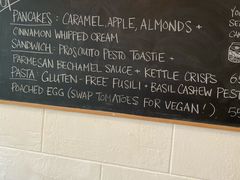 PANCAKES: CARAMEL APPLE, ALMONDS +
CINNAMON WHIPPED CREAM
SANDWICH: PROSCUITO PESTO TOASTIE +
PARMESAN BECHAMEL SAUCE + KETTLE CRISPS
PASTA: GLUTEN-FREE FUSILI + BASIL CASHEW PEST
POACHED EGG (SWAP TOMATOES FOR VEGAN!)